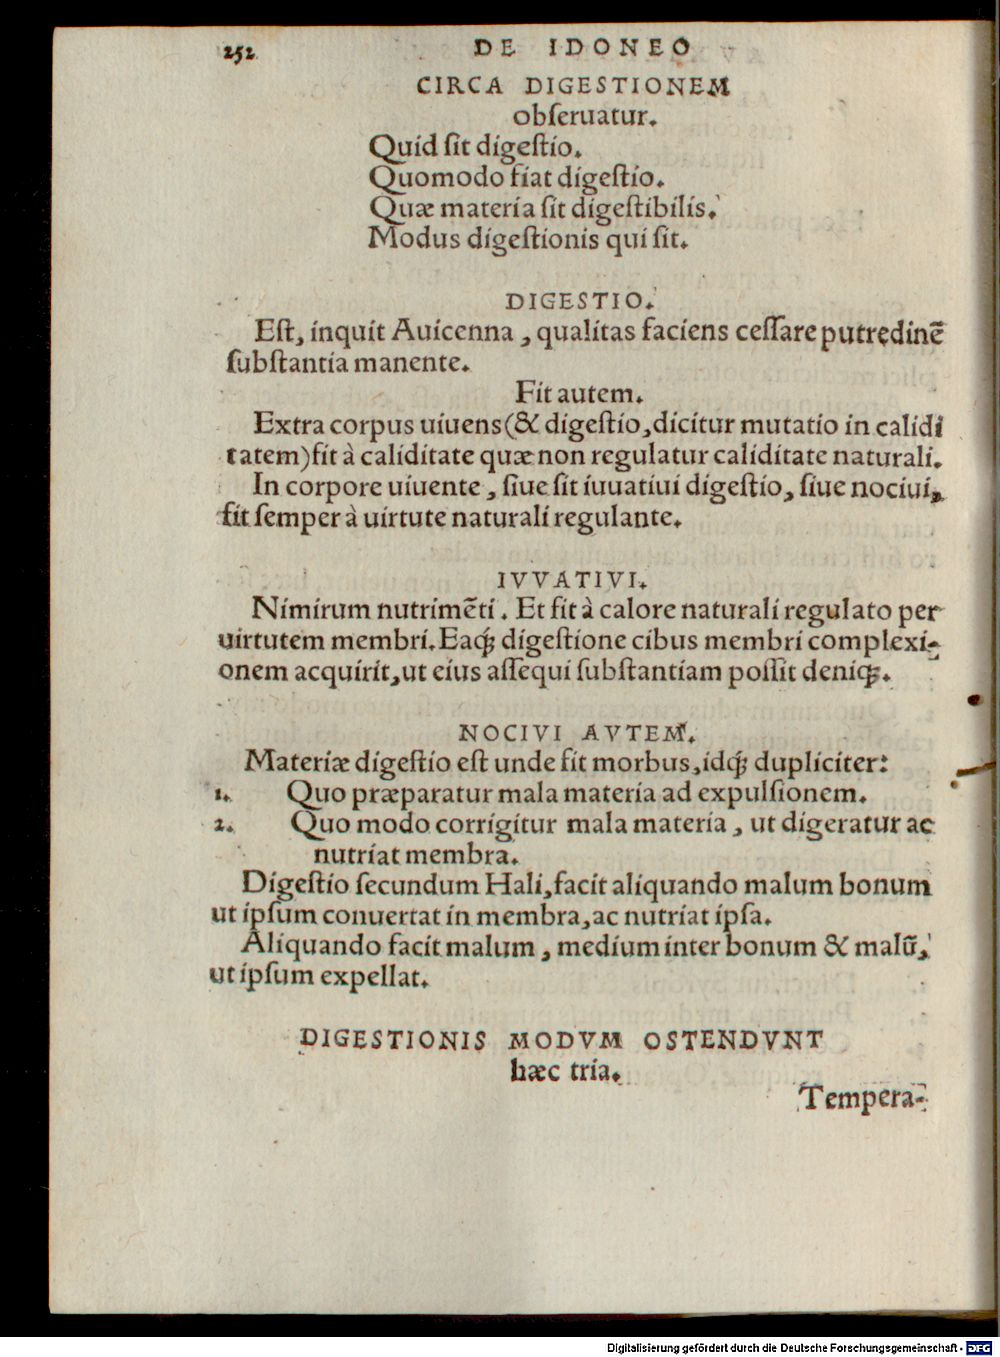 252 DE IDONEO
CIRCA DIGESTIONEM
obſeruatur.
Quid ſit digeſtio.
Quomodo fiat digeſtio.
Quæ materia ſit digeſtibilis.
Modus digeſtionis qui ſit.
DIGESTIO.
Eſt, inquit Auicenna, qualitas faciens ceſſare putredinē
ſubſtantia manente.
Fit autem.
Extra corpus uiuens(& digeſtio, dicitur mutatio in calidi
tatem)fit à caliditate quæ non regulatur caliditate naturali.
In corpore uiuente, ſiue ſit iuuatiui digeſtio, ſiue nociui,
fit ſemper à uirtute naturali regulante.
IVVATIVI.
Nimirum nutrimēti. Et fit à calore naturali regulato per
uirtutem membri. Eaq; digeſtione cibus membri complexi-
onem acquirit, ut eius aſſequi ſubſtantiam poſſit deniq;.
NOCIVI AVTEM.
Materiæ digeſtio eſt unde fit morbus, idq; dupliciter:
1. Quo præparatur mala materia ad expulſionem.
2. Quo modo corrigitur mala materia, ut digeratur ac
nutriat membra.
Digeſtio ſecundum Hali, facit aliquando malum bonum
ut ipſum conuertat in membra, ac nutriat ipſa.
Aliquando facit malum, medium inter bonum & malū,
ut ipſum expellat.
DIGESTIONIS MODVM OSTENDVNT
hæc tria.
Tempera-
Digitalisierung gefördert durch die Deutsche Forschungsgemeinschaft - DFG